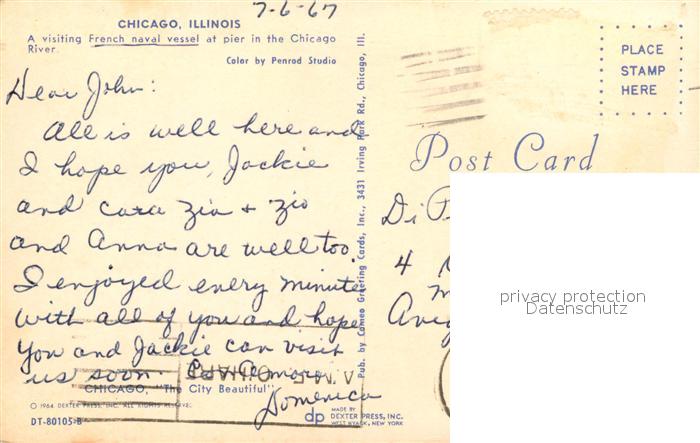 7-6-67
CHICAGO, ILLINOIS
A visiting French naval vessel at pier in the Chicago
River.
Color by Penrod Studio
Dear John:
All is well here and
I hope you, Jackie
and cara Zia + Zio
and Anna are well too.
I enjoyed every minute
with all of you and hope
you and Jackie can visit
us soon.
Domenica
CHICAGO, "The City Beautiful"
© 1964 DEXTER PRESS, INC. ALL RIGHTS RESERVED.
DT-80105-B
dp
MADE BY
DEXTER PRESS, INC.
WEST NYACK, NEW YORK
Pub. by Cameo Greeting Cards, Inc., 3431 Irving Park Rd., Chicago, Ill.
PLACE
STAMP
HERE
Post Card
Di
4
privacy protection
Datenschutz